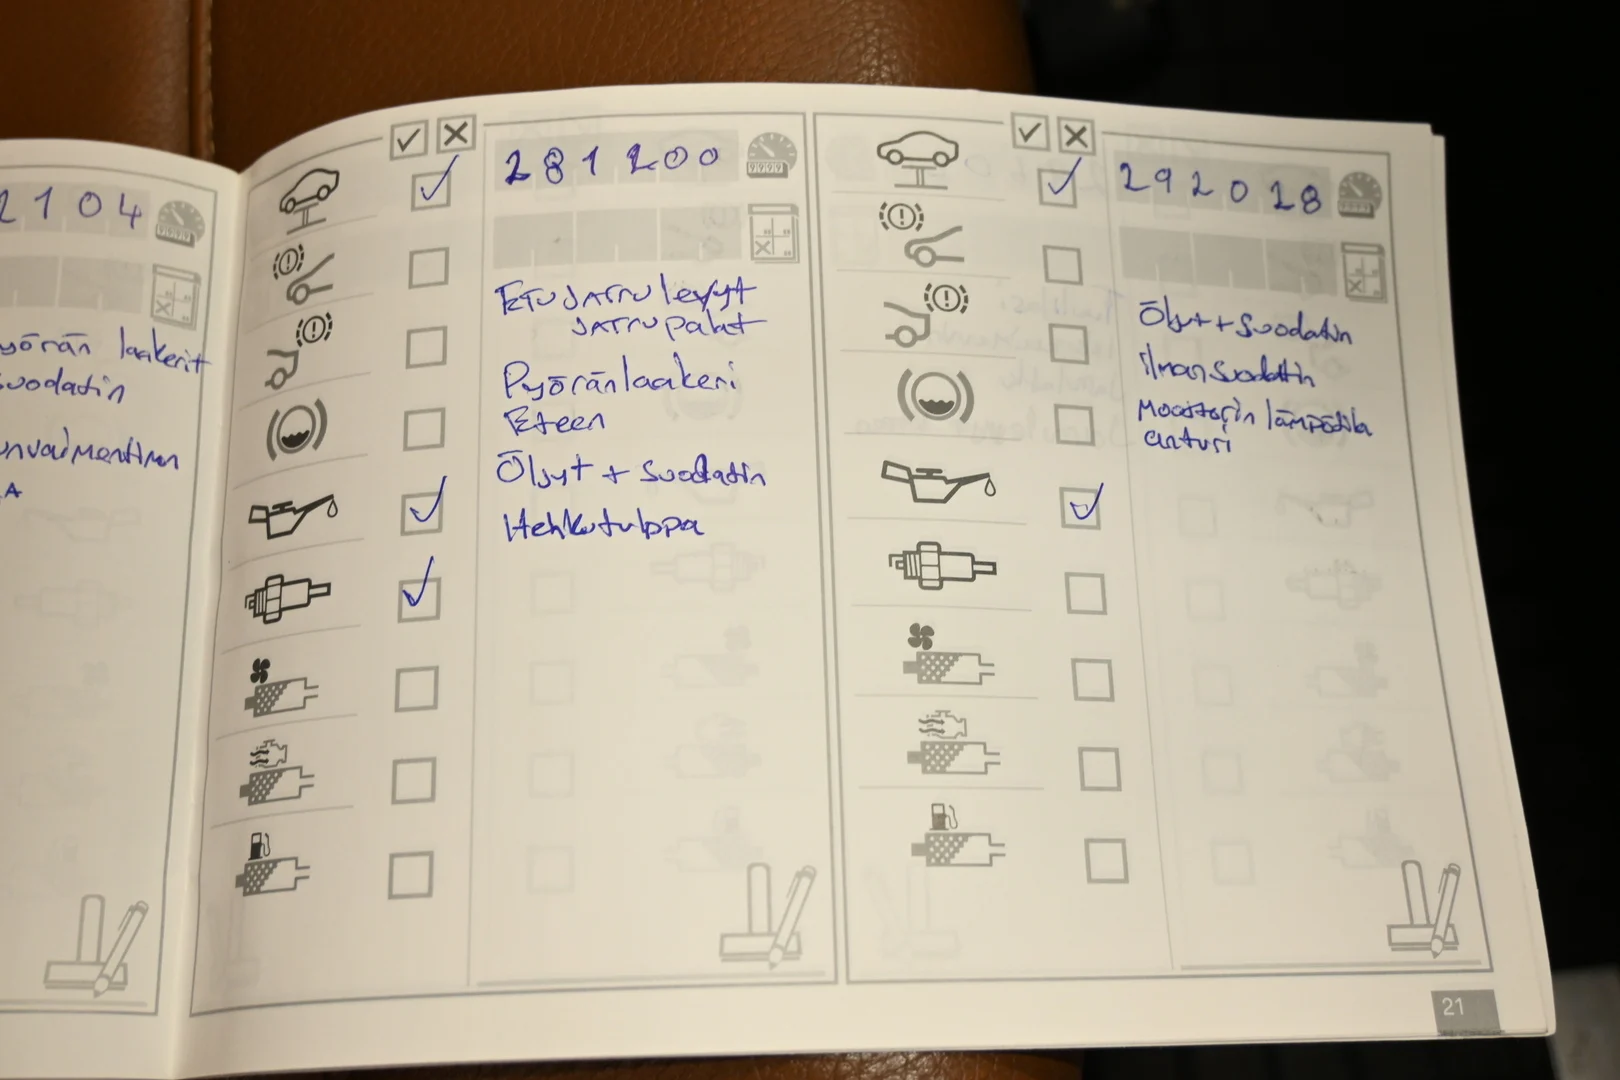 2104
yörän laakerit
suodatin
281200
Etujarrulevyt
jarrupalat
Pyöränlaakeri
Eteen
Öljyt + Suodatin
Hehkutulppa
292028
Öljyt + Suodatin
ilmanSuodatin
Moottorin lämpötila
anturi
21